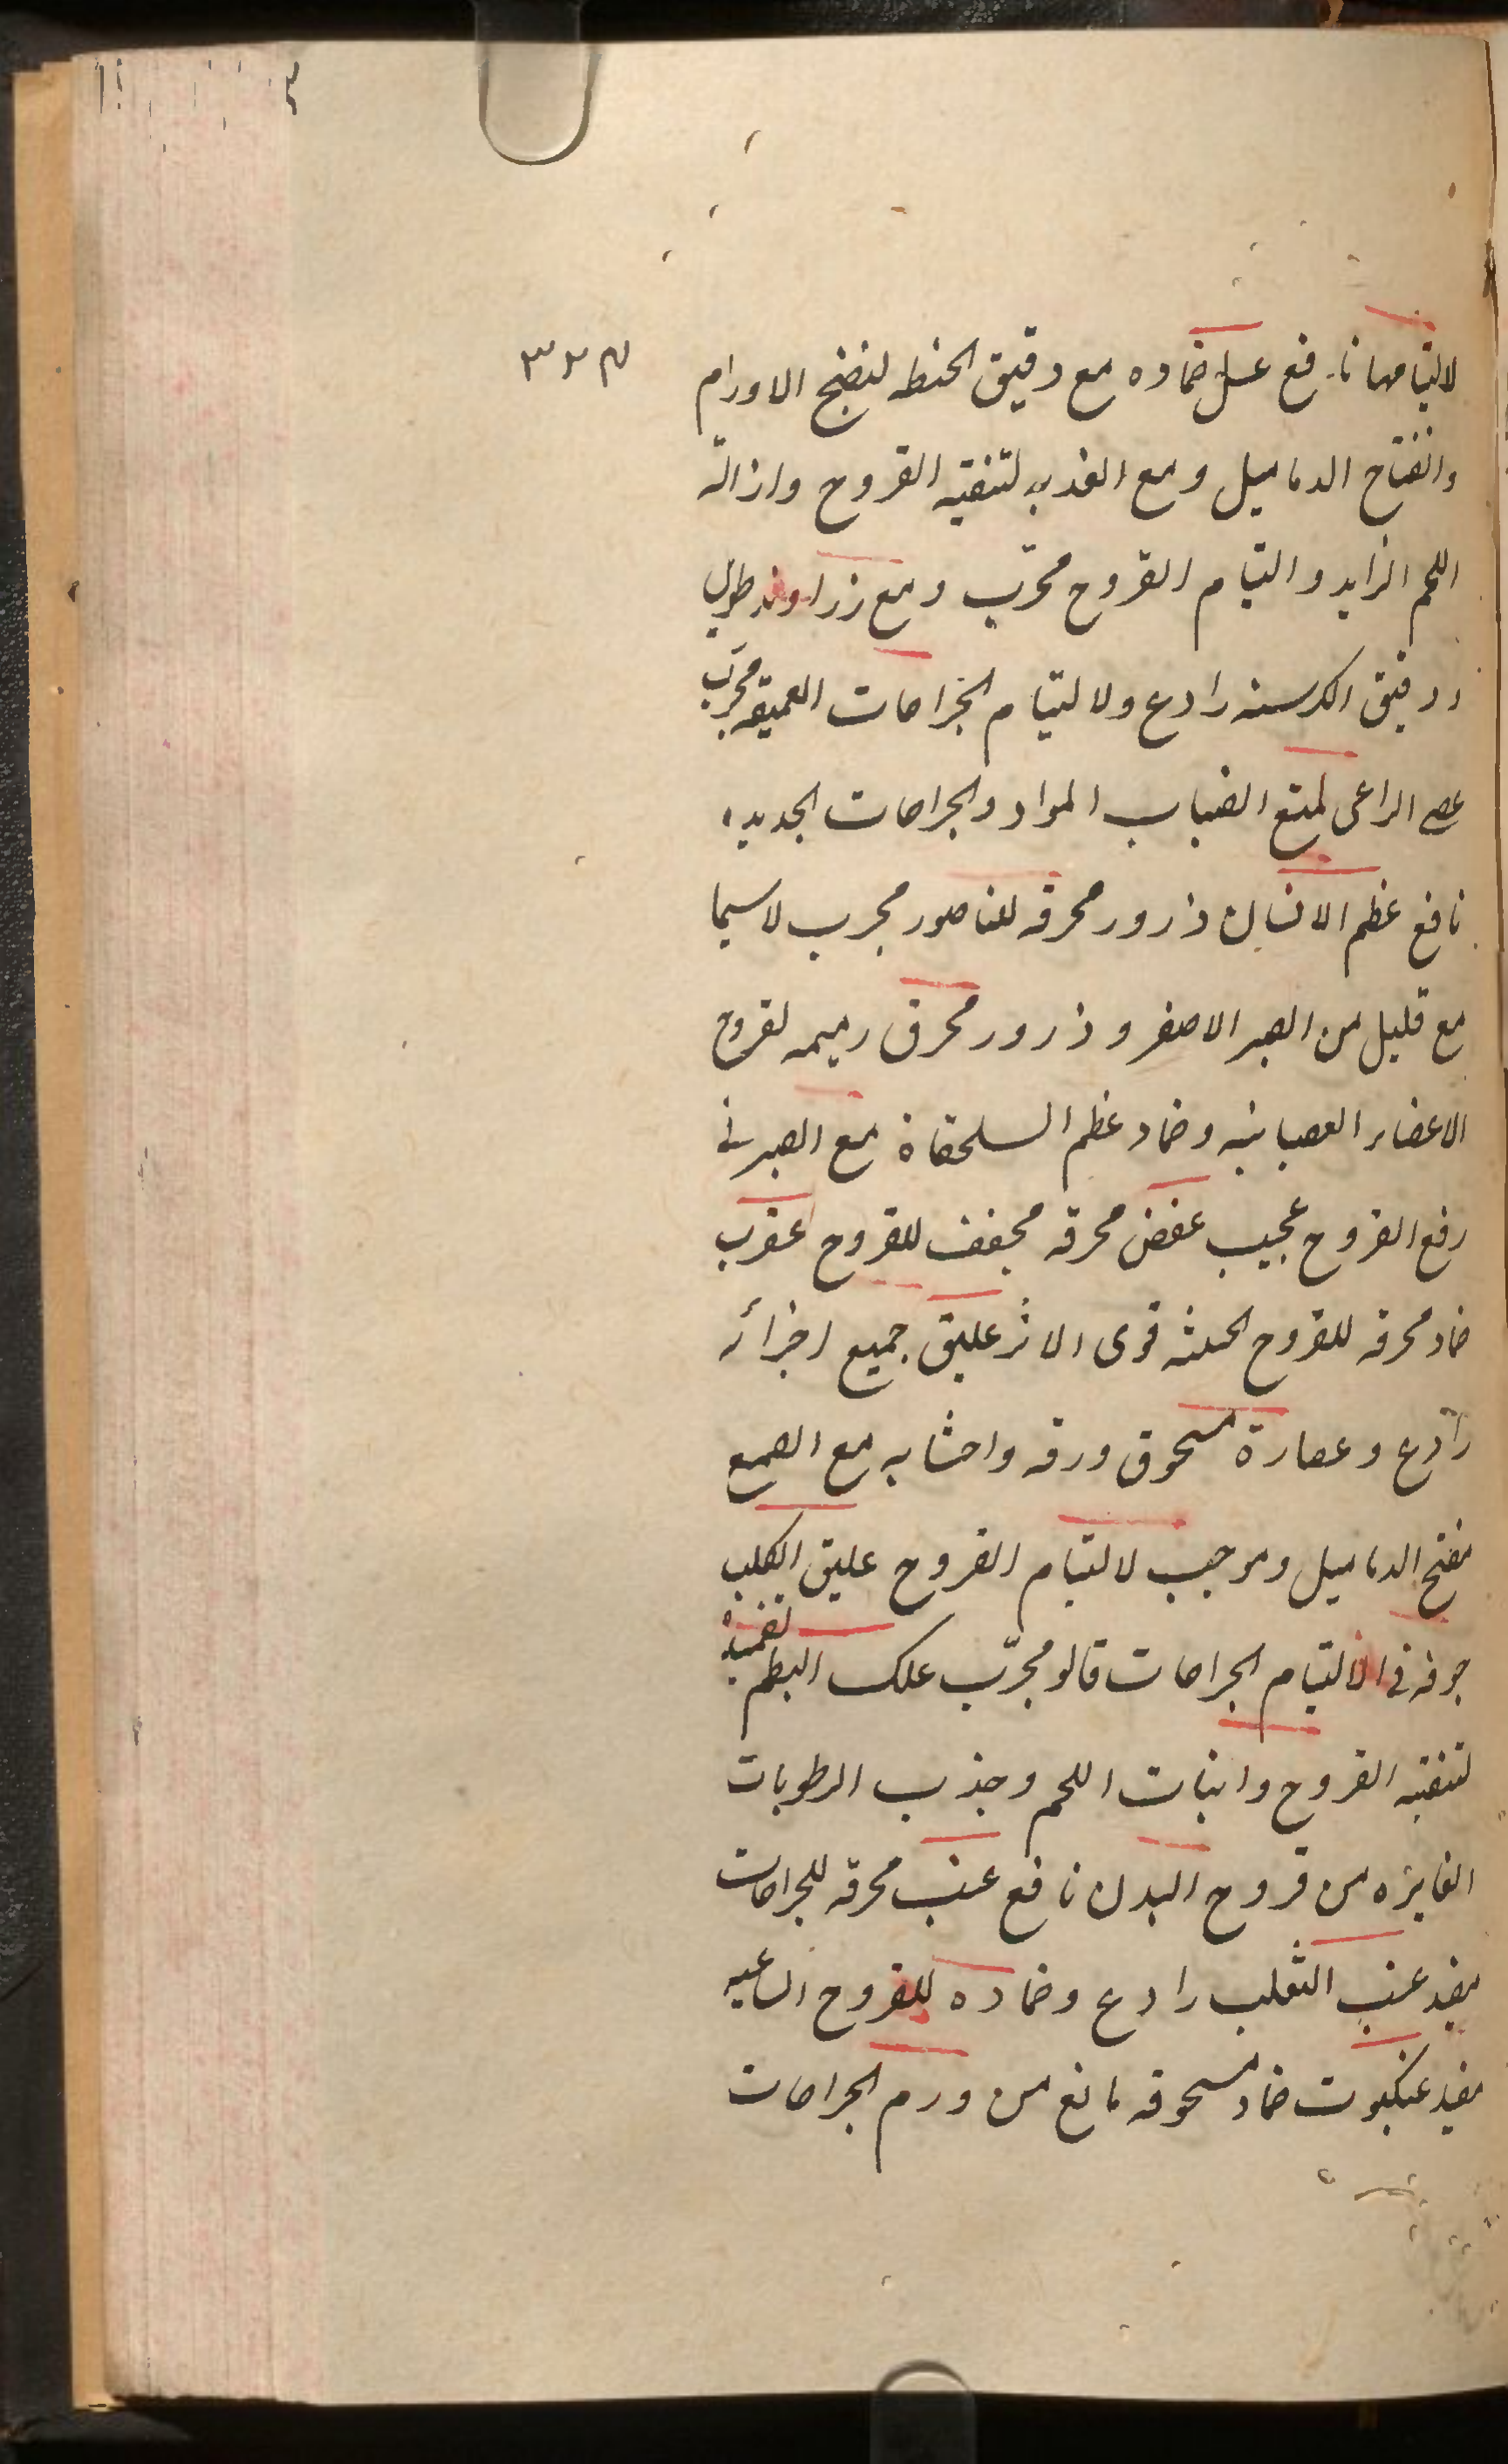 لالتيامها نافع عسل ضماده مع دقيق الحنطه لنضج الاورام
وانفتاح الدماميل ومع لتنقيه القروح وازالة
اللحم الزايد والتيام القروح مجرّب ومع زراوند طويل
ودقيق الكرسنه رادع ولالتيام الجراحات العميقه مجرّب
عصى الراعى لمنع انصباب المواد والجراحات الجديده
نافع عظم الانسان ذرور محرقه للناصور مجرب لاسيما
مع قليل من الصبر الاصفر وذرور محرق رميمه لقروح
الاعضاء العصبانيه وضماد عظم السلحفاة مع الصبر فى
رفع القروح عجيب عفص محرقه مجفف للقروح عقرب
ضماد محرقه للقروح الخبيثه قوى الاثر عليق جميع اجزائه
رادع وعصارة مسحوق ورقه واحشا به مع الصمغ
مفتح الدماميل وموجب لالتيام القروح عليق الكلب
جوفه فى الالتيام الجراحات قالو مجرّب علك البطم تضميده
لتنقيه القروح وانبات اللحم وجذب الرطوبات
الغايره من قروح البدن نافع عنب محرقه للجراحات
مفيد عنب الثعلب رادع وضماده للقروح الساعيه
مفيد عنكبوت ضماد مسحوقه مانع من ورم الجراحات